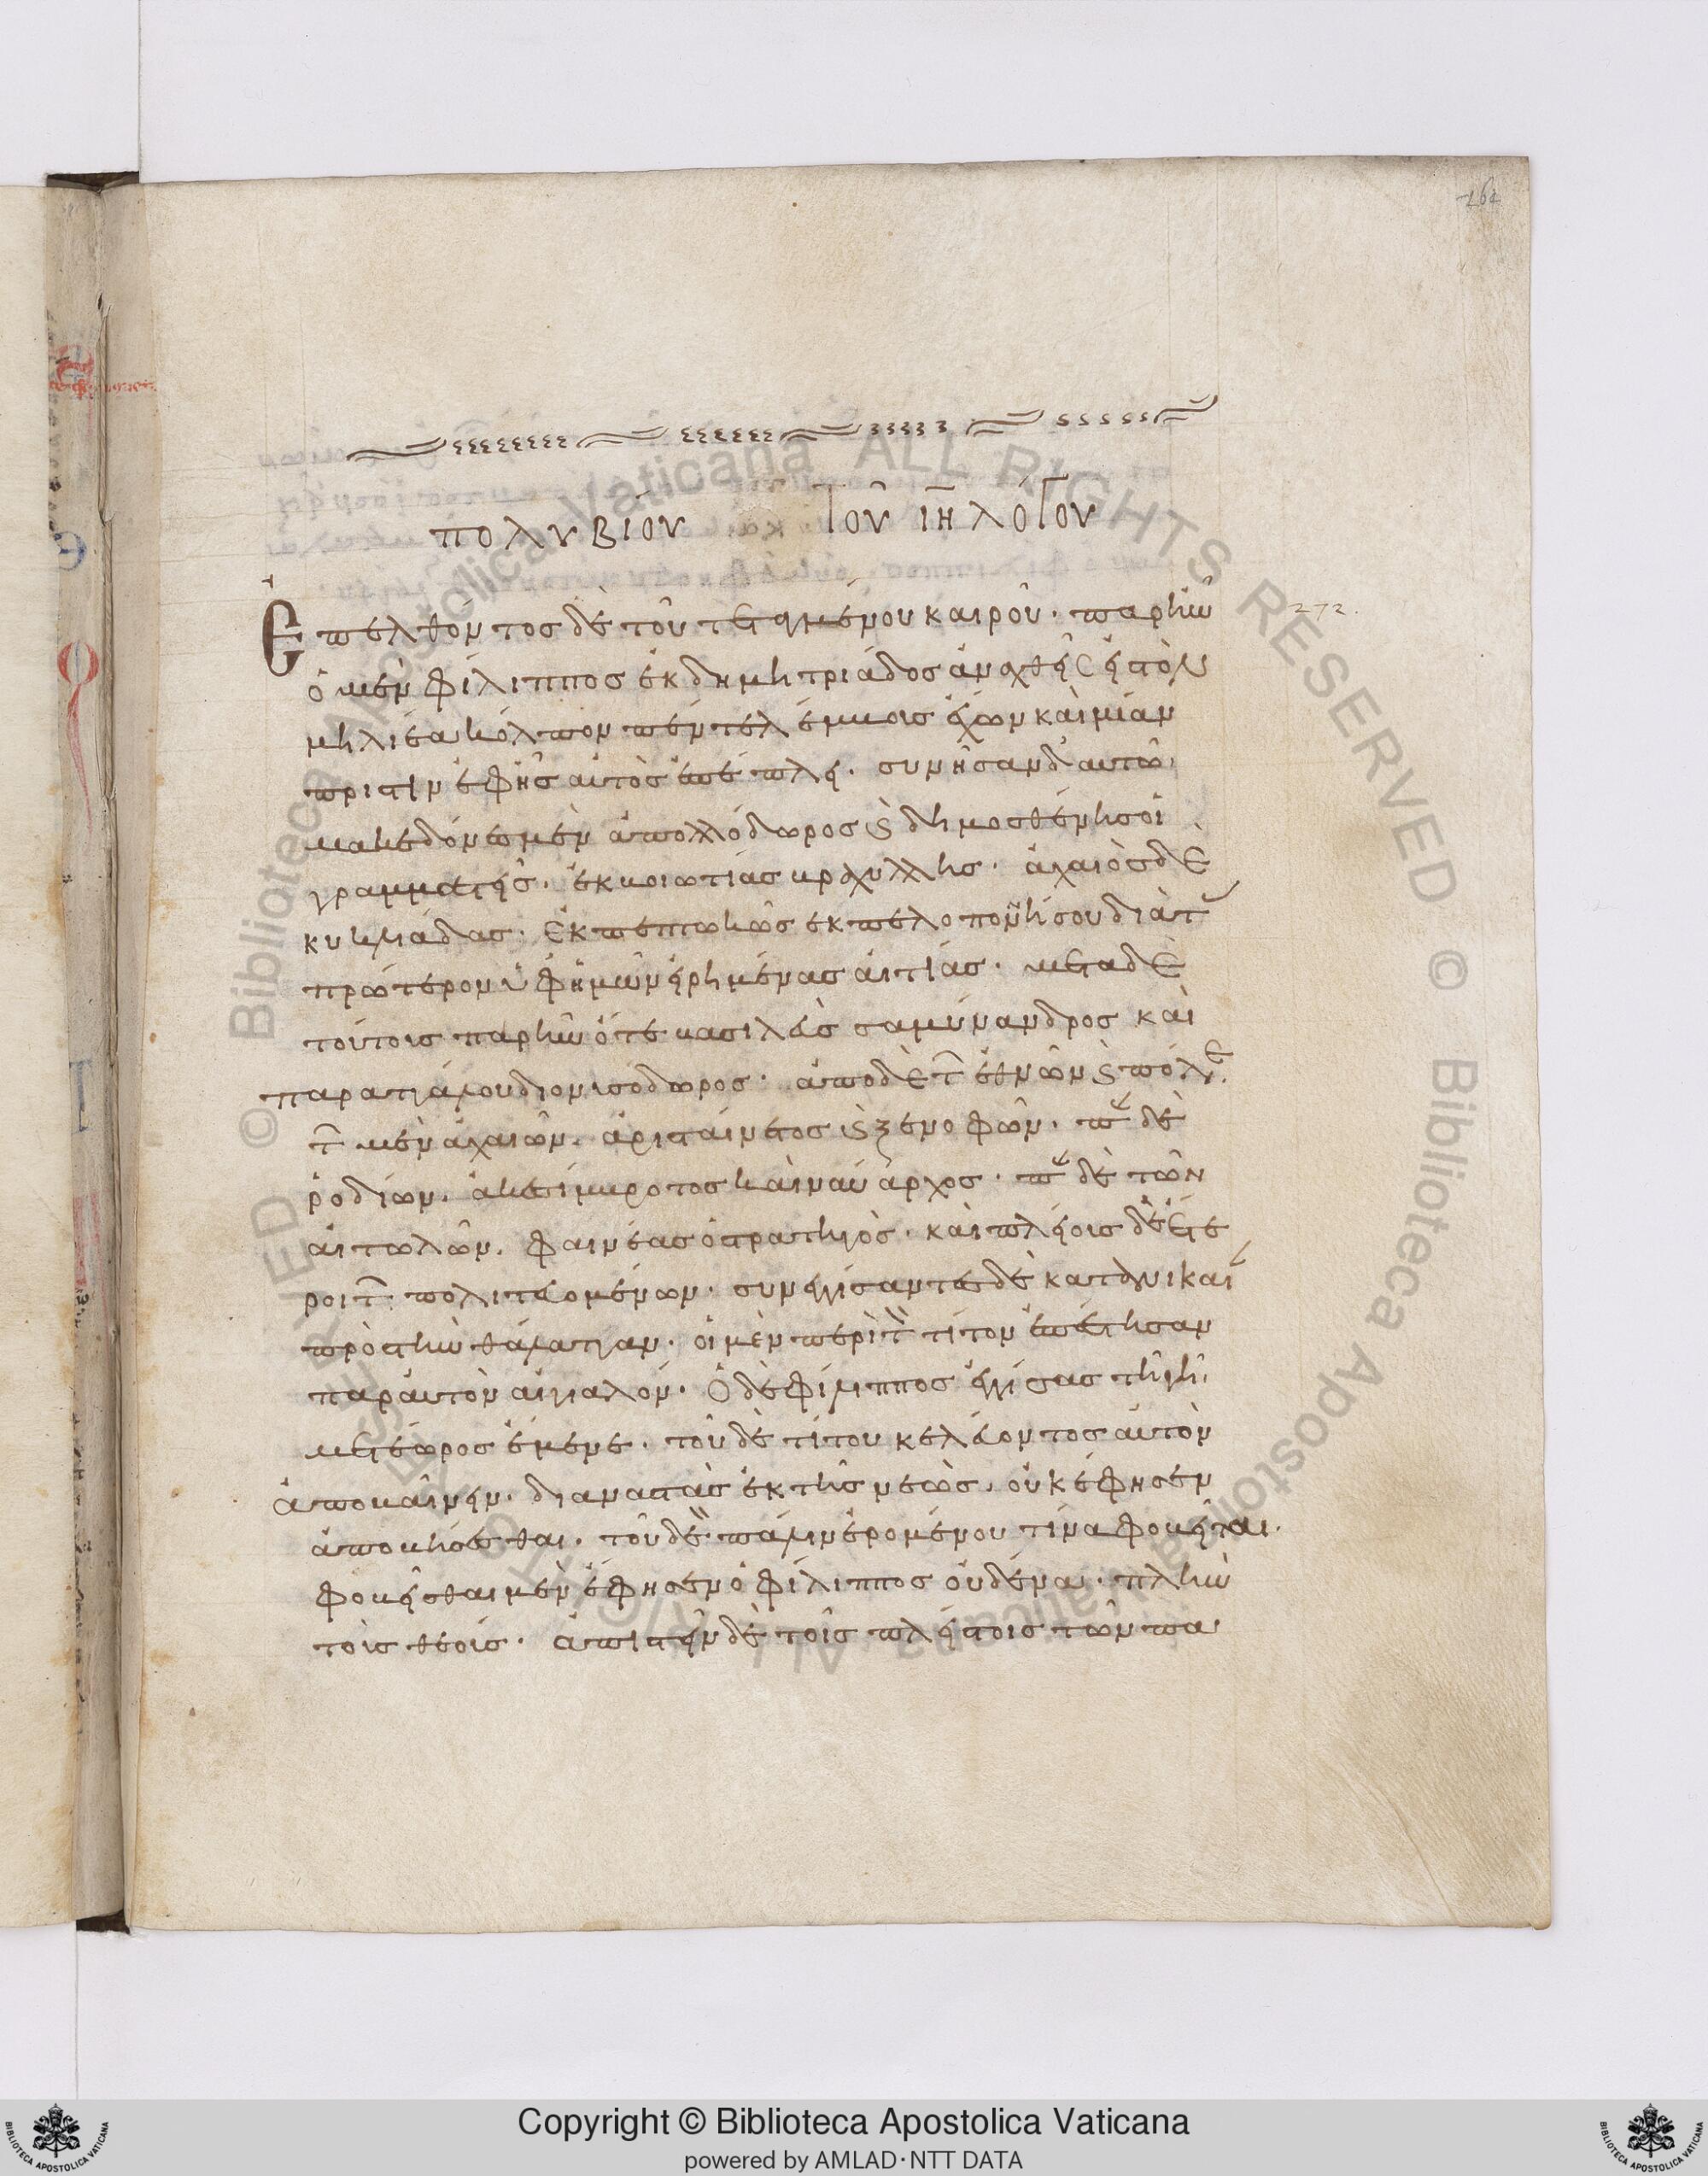 164
πολυβίου τοῦ ιη λόγου
Ἐπελθόντος δὲ τοῦ τεταγμένου καιροῦ· παρῆν
272.
ὁ μὲν φίλιππος ἐκ δημητριάδος ἀναχθεὶς εἰς τὸν
μηλιέα κόλπον πέντε λέμβους ἔχων καὶ μίαν
πρίστιν ἐφ ἧς αὐτὸς ἐπέπλει. συνῆσαν δ αὐτῶ
μακεδόνες μὲν ἀπολλόδωρος ϗ δημοσθένης οἱ
γραμματεῖς. ἐκ βοιωτίας βραχύλλης. ἀχαιὸς δὲ
κυκλιάδας. ἐκπεπτωκὼς ἐκ πελοποννήσου διὰ τὰς
πρότερον ὑφ ἡμῶν εἰρημένας αἰτίας. μετὰ δὲ
τούτοις παρῆν ὅτε βασιλεὺς σαμύνανδρος καὶ
παρὰ ττάλου διονισόδωρος. ἀπὸ δὲ τῶν ἐθνῶν ϗ πόλεων
τῶν μὲν ἀχαιῶν. ἀρισταίνετος ϗ ξενοφῶν. παρὰ δὲ
ῥοδίων. ἀκεσίμβροτος καὶ ναύαρχος. παρὰ δὲ τῶν
αἰτωλῶν. φαινέας ὁ στρατηγὸς. καὶ πλείοις δὲ ἕτε
ροι τῶν πολιτευομένων. συνεγγίσαντες δὲ κατὰ νικαίαν
πρὸς τὴν θάλατταν. οἱ μὲν περὶ τὸν τίτον ἐπέστησαν
παρ αὐτὸν αἰγιαλόν. Ὁ δὲ φίλιππος ἐγγίσας τῆ γῆ
μετέωρος ἔμενε. τοῦ δὲ τίτου κελεύοντος αὐτὸν
ἀποβαίνειν. διαναστὰς ἐκ τῆς νεὼς. οὐκ ἔφησεν
ἀποβήσεσθαι. τοῦ δὲ πάλιν ἐρομένου τίνα φοβεῖται.
φοβεῖσθαι μὲν ἔφησεν ὁ φίλιππος οὐδένα. πλὴν
τοὶς θεοίς. ἀπιστεῖν δὲ τοῖς πλείστοις τῶν πα
Copyright © Biblioteca Apostolica Vaticana
powered by AMLAD·NTT DATA